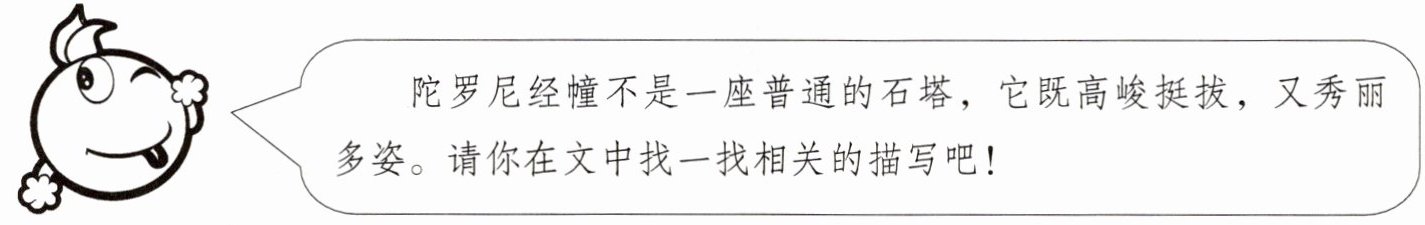 陀罗尼经幢不是一座普通的石塔，它既高峻挺拔，又秀丽
多姿。请你在文中找一找相关的描写吧！